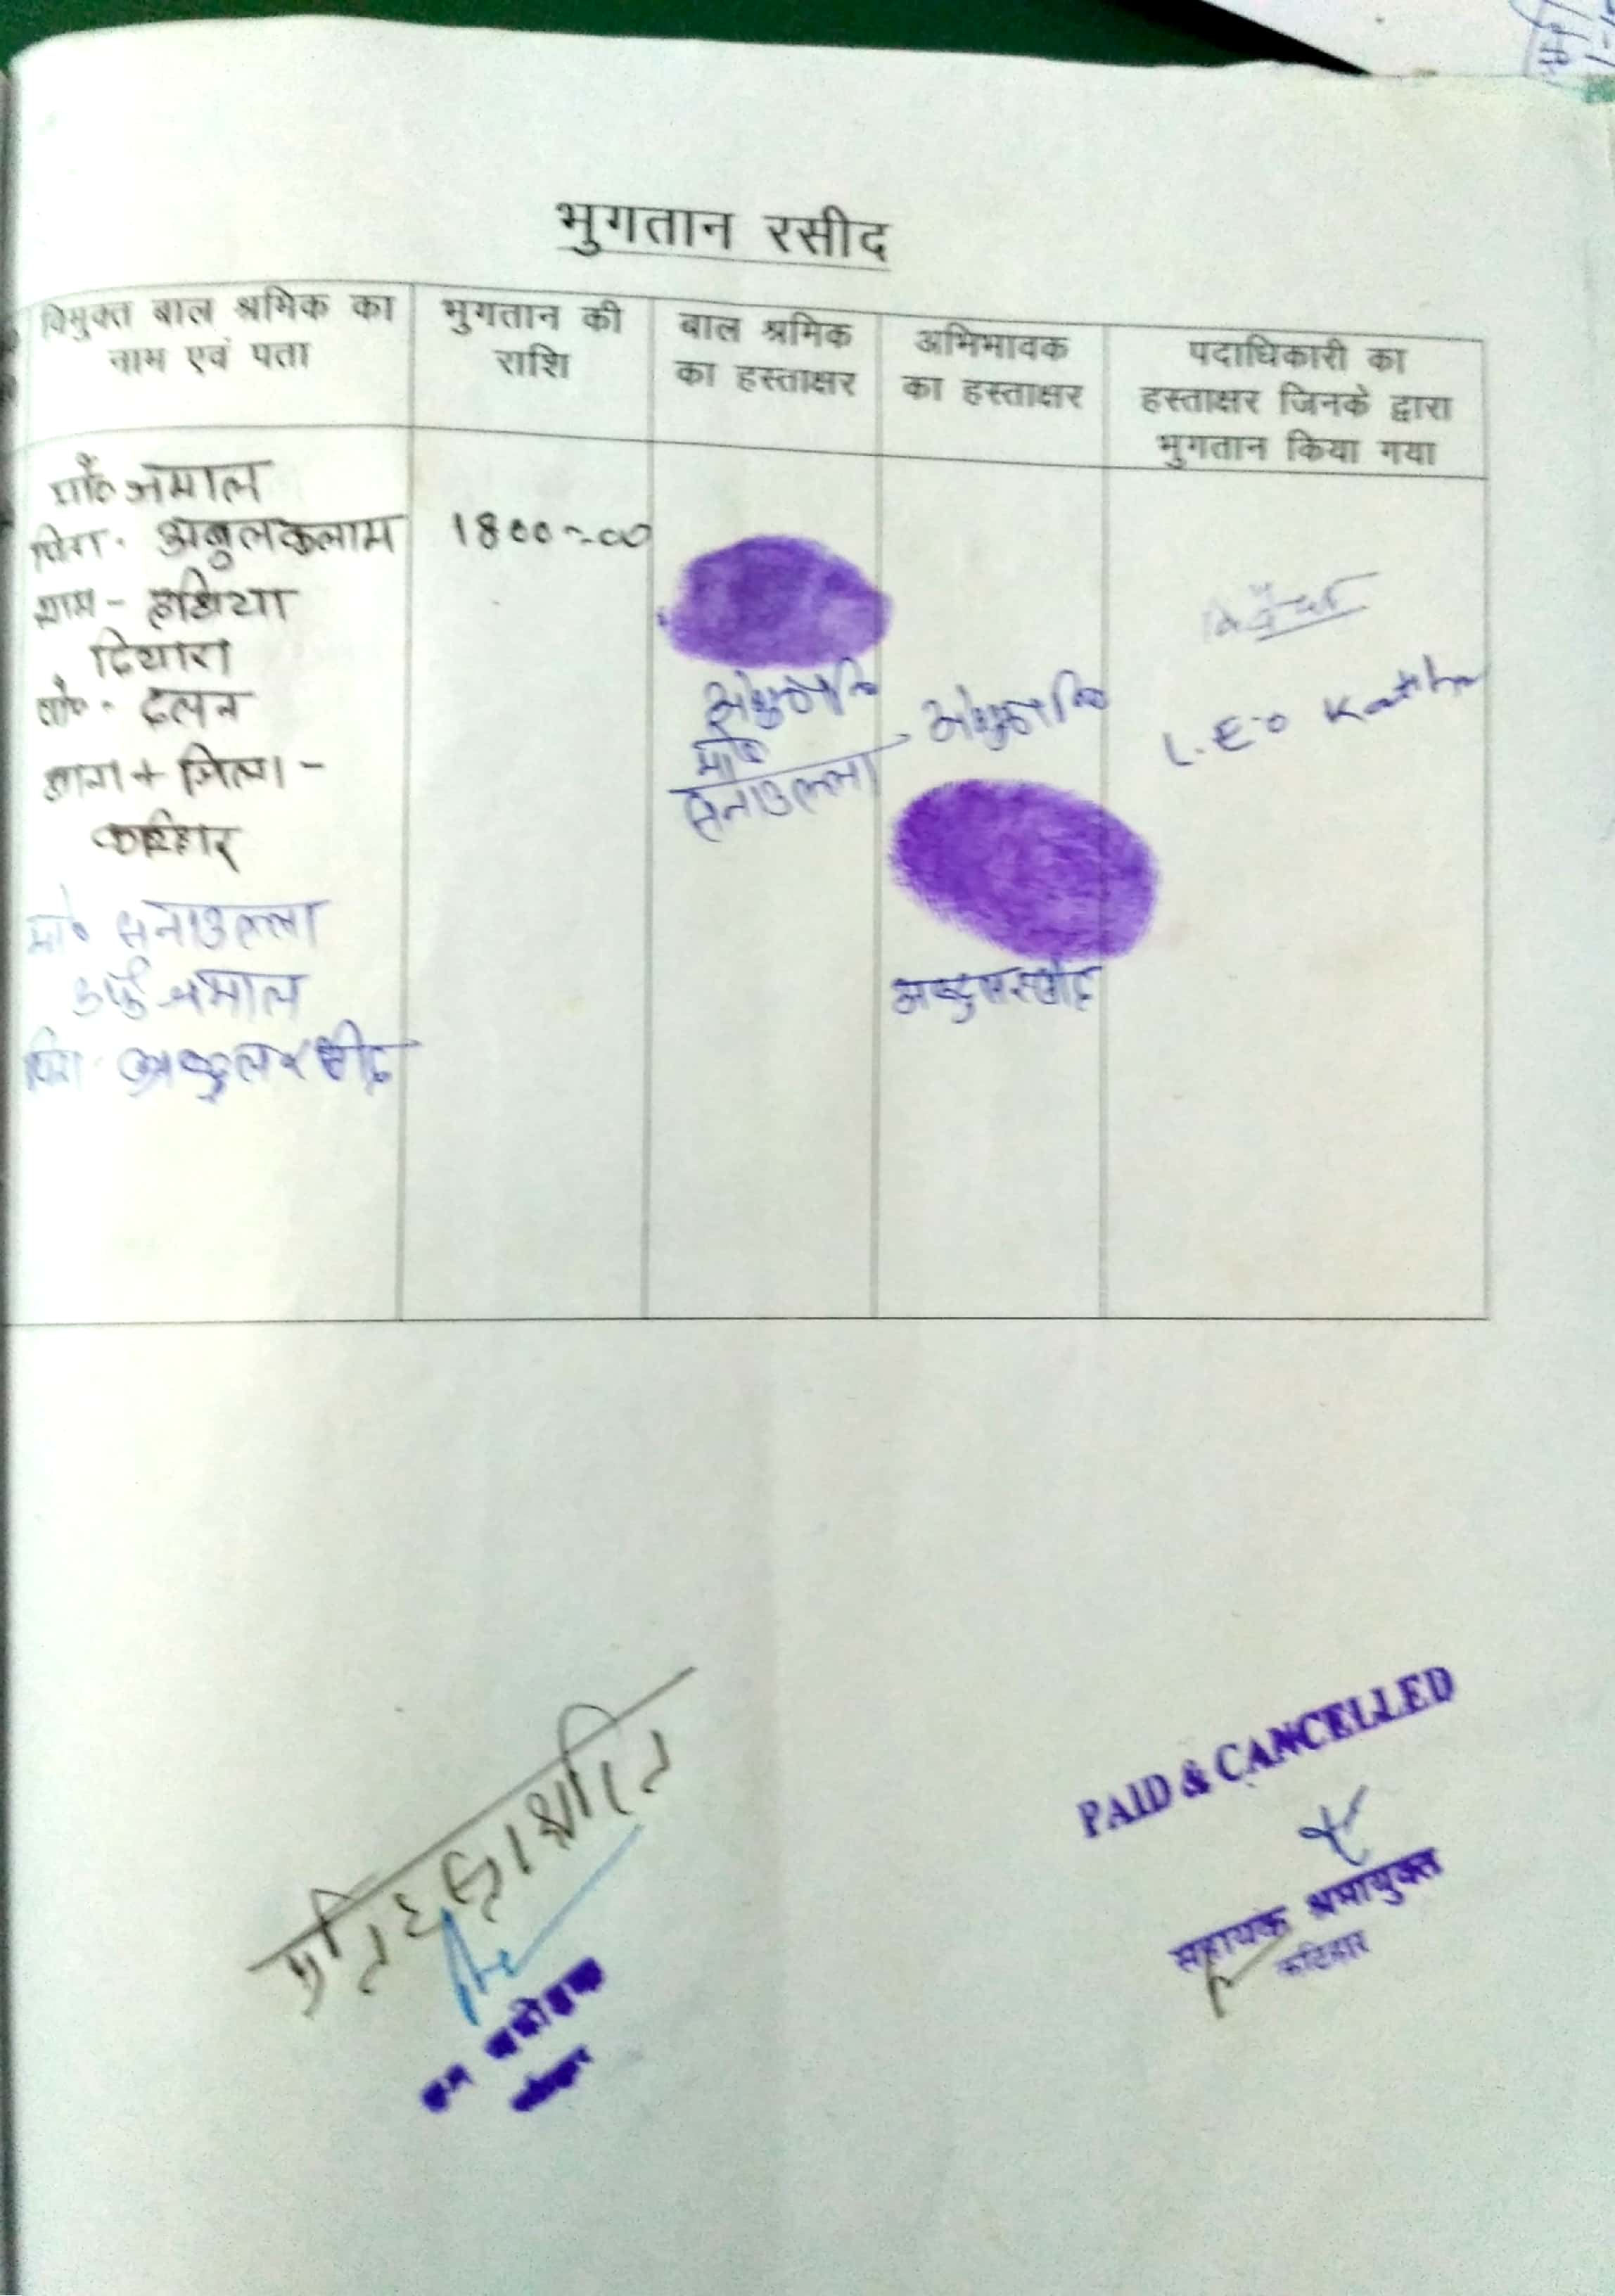 भुगतान रसीद
विमुक्त बाल श्रमिक का
नाम एवं पता
भुगतान की
राशि
बाल श्रमिक
का हस्ताक्षर
अभिभावक
का हस्ताक्षर
पदाधिकारी का
हस्ताक्षर जिनके द्वारा
भुगतान किया गया
मो० जमाल
पिता- अबुलकलाम
ग्राम - हथिया
दियारा
पो०- दलन
थाना + जिला -
कटिहार
मो० सनाउल्ला
उर्फ जमाल
पिता- अब्दुल रसीद
1800=00
मो०
सनाउल्ला
अब्दुल रसीद
L.E.O Katihar
PAID & CANCELLED
सहायक श्रमायुक्त
कटिहार